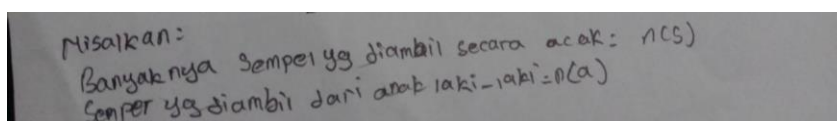 Misalkan:
Banyaknya sempel yg diambil secara acak = n(s)
Semper yg diambil dari anak laki-laki = n(a)